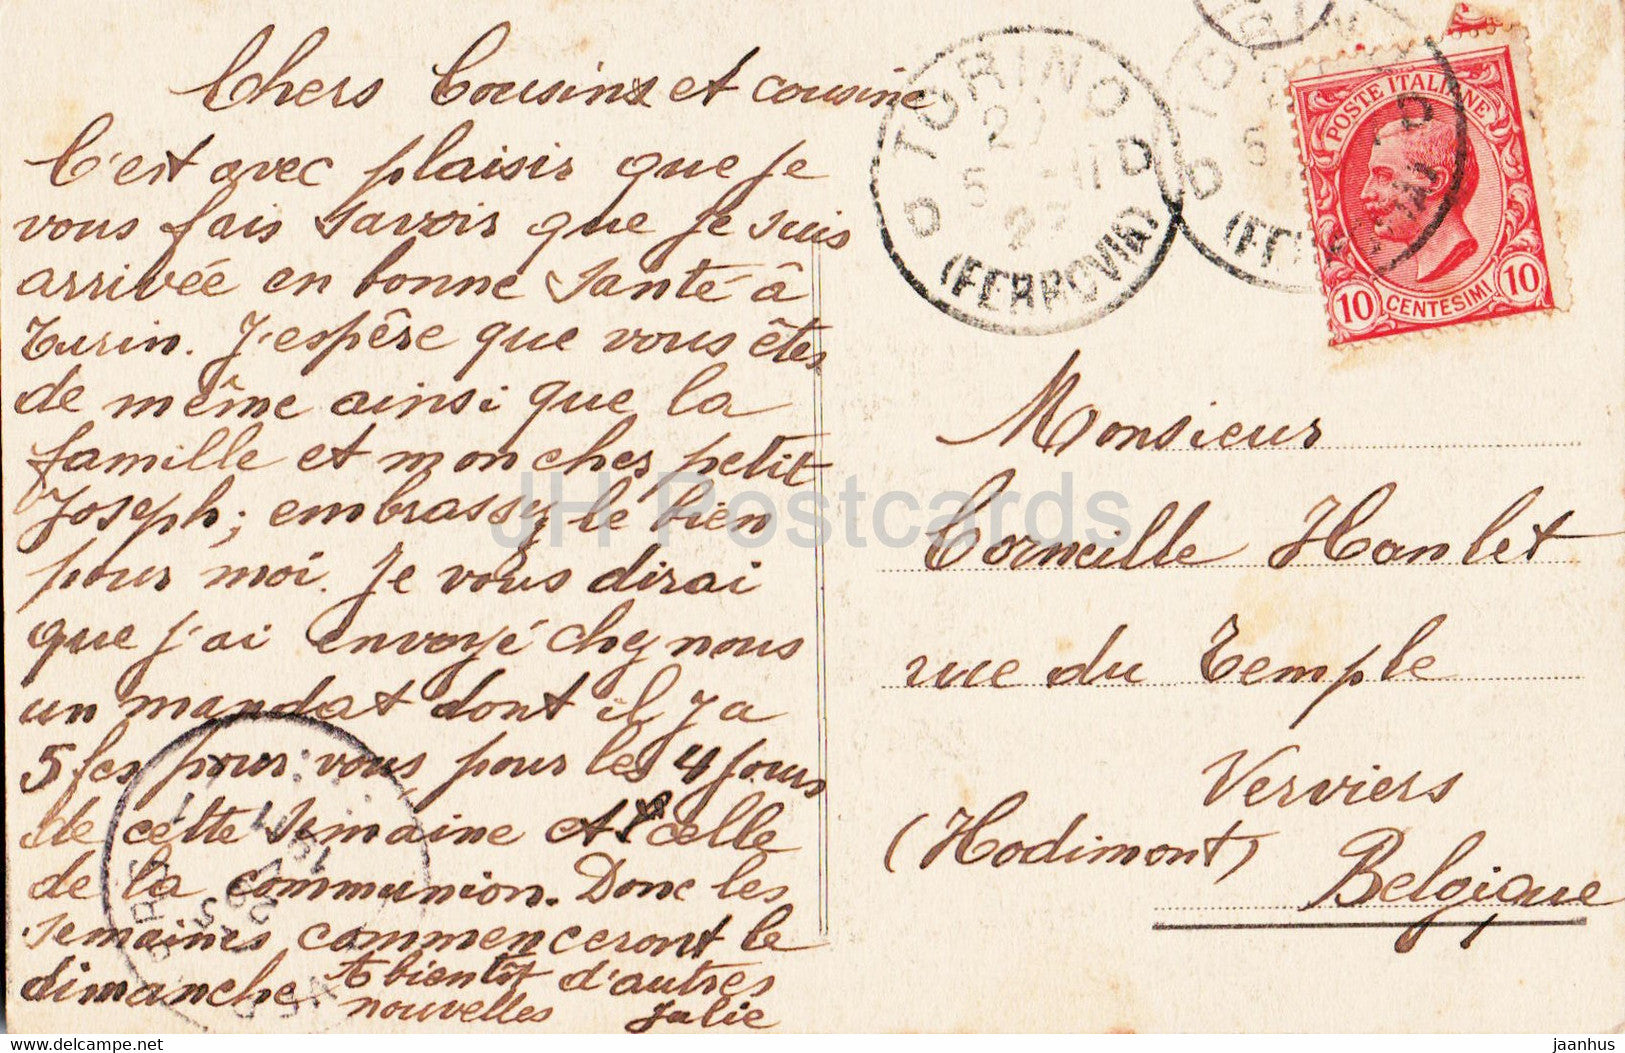 Chers Cousins et cousine
C'est avec plaisir que je
vous fais savoir que je suis
arrivée en bonne santé à
Turin. J'espère que vous êtes
de même ainsi que la
famille et mon cher petit
Joseph; embrassez le bien
pour moi. Je vous dirai
que j'ai envoyé chez nous
un mandat dont il y a
5 fcs pour vous pour les 4 jours
de cette semaine et celle
de la communion. Donc les
semaines commenceront le
dimanche A bientôt d'autres
nouvelles Julie
TORINO
20
5
(FERROVIA)
POSTE ITALIANE
10 CENTESIMI 10
Monsieur
Corneille Hanlet
rue du Temple
Verviers
(Hodimont)
Belgique
JH Postcards
delcampe.net
jaanhus